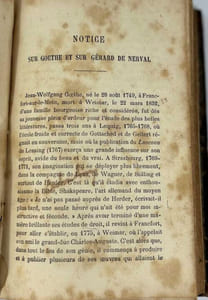 NOTICE
SUR GOETHE ET SUR GÉRARD DE NERVAL
Jean-Wolfgang Gœthe, né le 28 août 1749, à Franc-
fort-sur-le-Mein, mort à Weimar, le 22 mars 1832,
d'une famille bourgeoise riche et considérée, fut dès
sa jeunesse plein d'ardeur pour l'étude des plus belles
littératures, passa trois ans à Leipzig, 1765-1768, où
l'école froide et correcte de Gottsched et de Gellert ré-
gnait en souveraine, mais où la publication du Laocoon
de Lessing (1767) exerça une grande influence sur son
esprit, avide du beau et du vrai. A Strasbourg, 1769-
1771, son imagination put se déployer plus librement,
dans la compagnie de de Wagner, de Stilling et
surtout de Herder. C'est là qu'il étudia avec enthou-
l'art allemand du moyen
âge: « Je n'ai pas passé auprès de Herder, écrivait-il
plus tard, une heure qui n'ait été pour moi ins-
tructive et féconde. » Après avoir terminé d'une ma-
nière brillante ses études de droit, il revint à Francfort,
pour aller s'établir, en 1775, à Weimar, où l'appelait
son ami le grand-duc Charles-Auguste. C'est alors que,
dans tout le feu de son génie, il commença à produire
et à publier plusieurs de ses œuvres qui allaient le